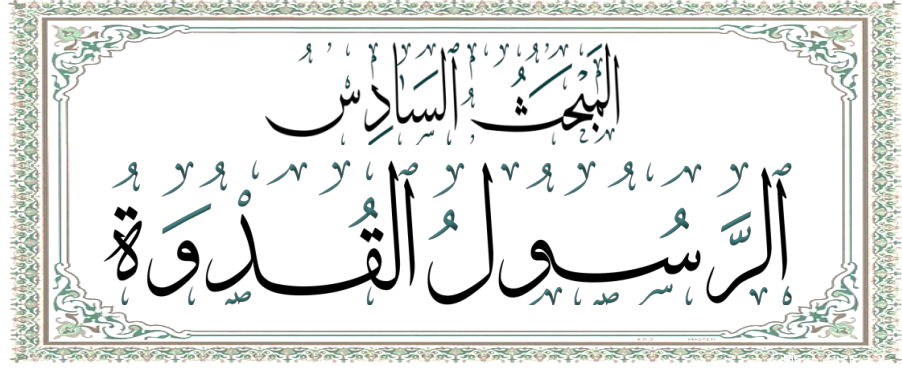 المَبْحَثُ السَّادِسُ
الرَّسُولُ القُدْوَةُ